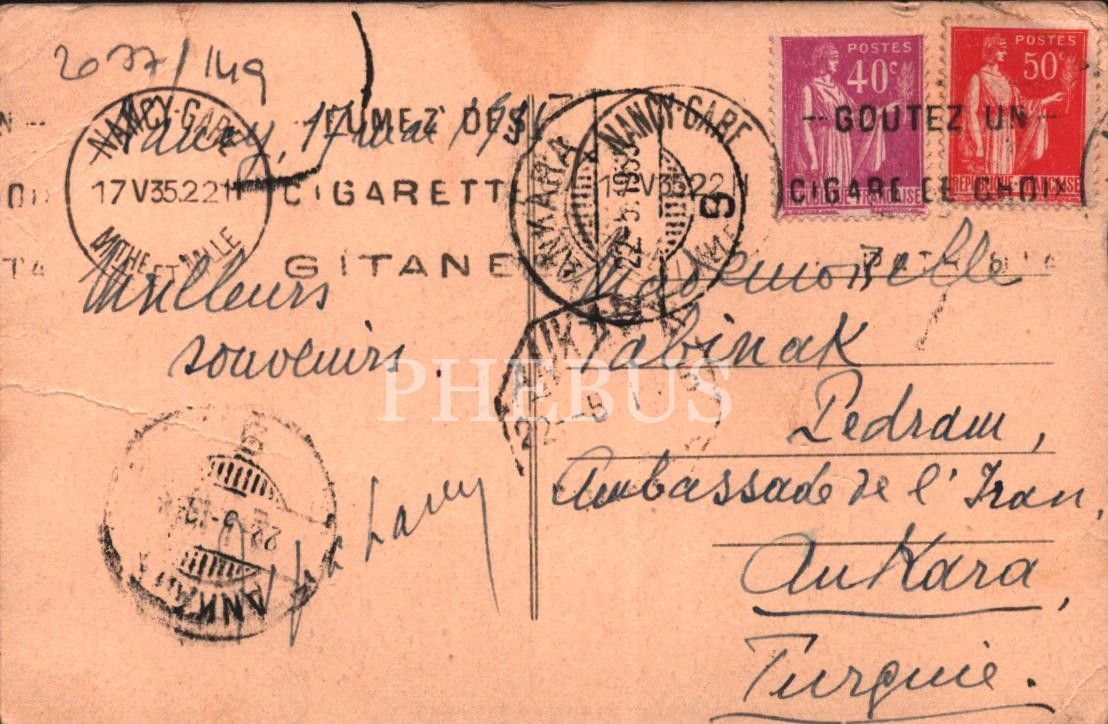 2077/149
POSTES
40c
RÉPUBLIQUE FRANÇAISE
POSTES
50c
RÉPUBLIQUE FRANÇAISE
NANCY-GARE
17 V 35.22H
MTHE ET MLLE
FUMEZ DES
CIGARETT
GITANE
NANCY-GARE
17 V 35.22H
GOUTEZ UN
CIGARE DE CHOIX
ANKARA
22-5-1935
9
Nancy, 17 mai 1935
Meilleurs
souvenirs.
Mademoiselle
Pedram,
Ambassade de l'Iran,
Ankara,
Turquie.
ANKARA
PHEBUS